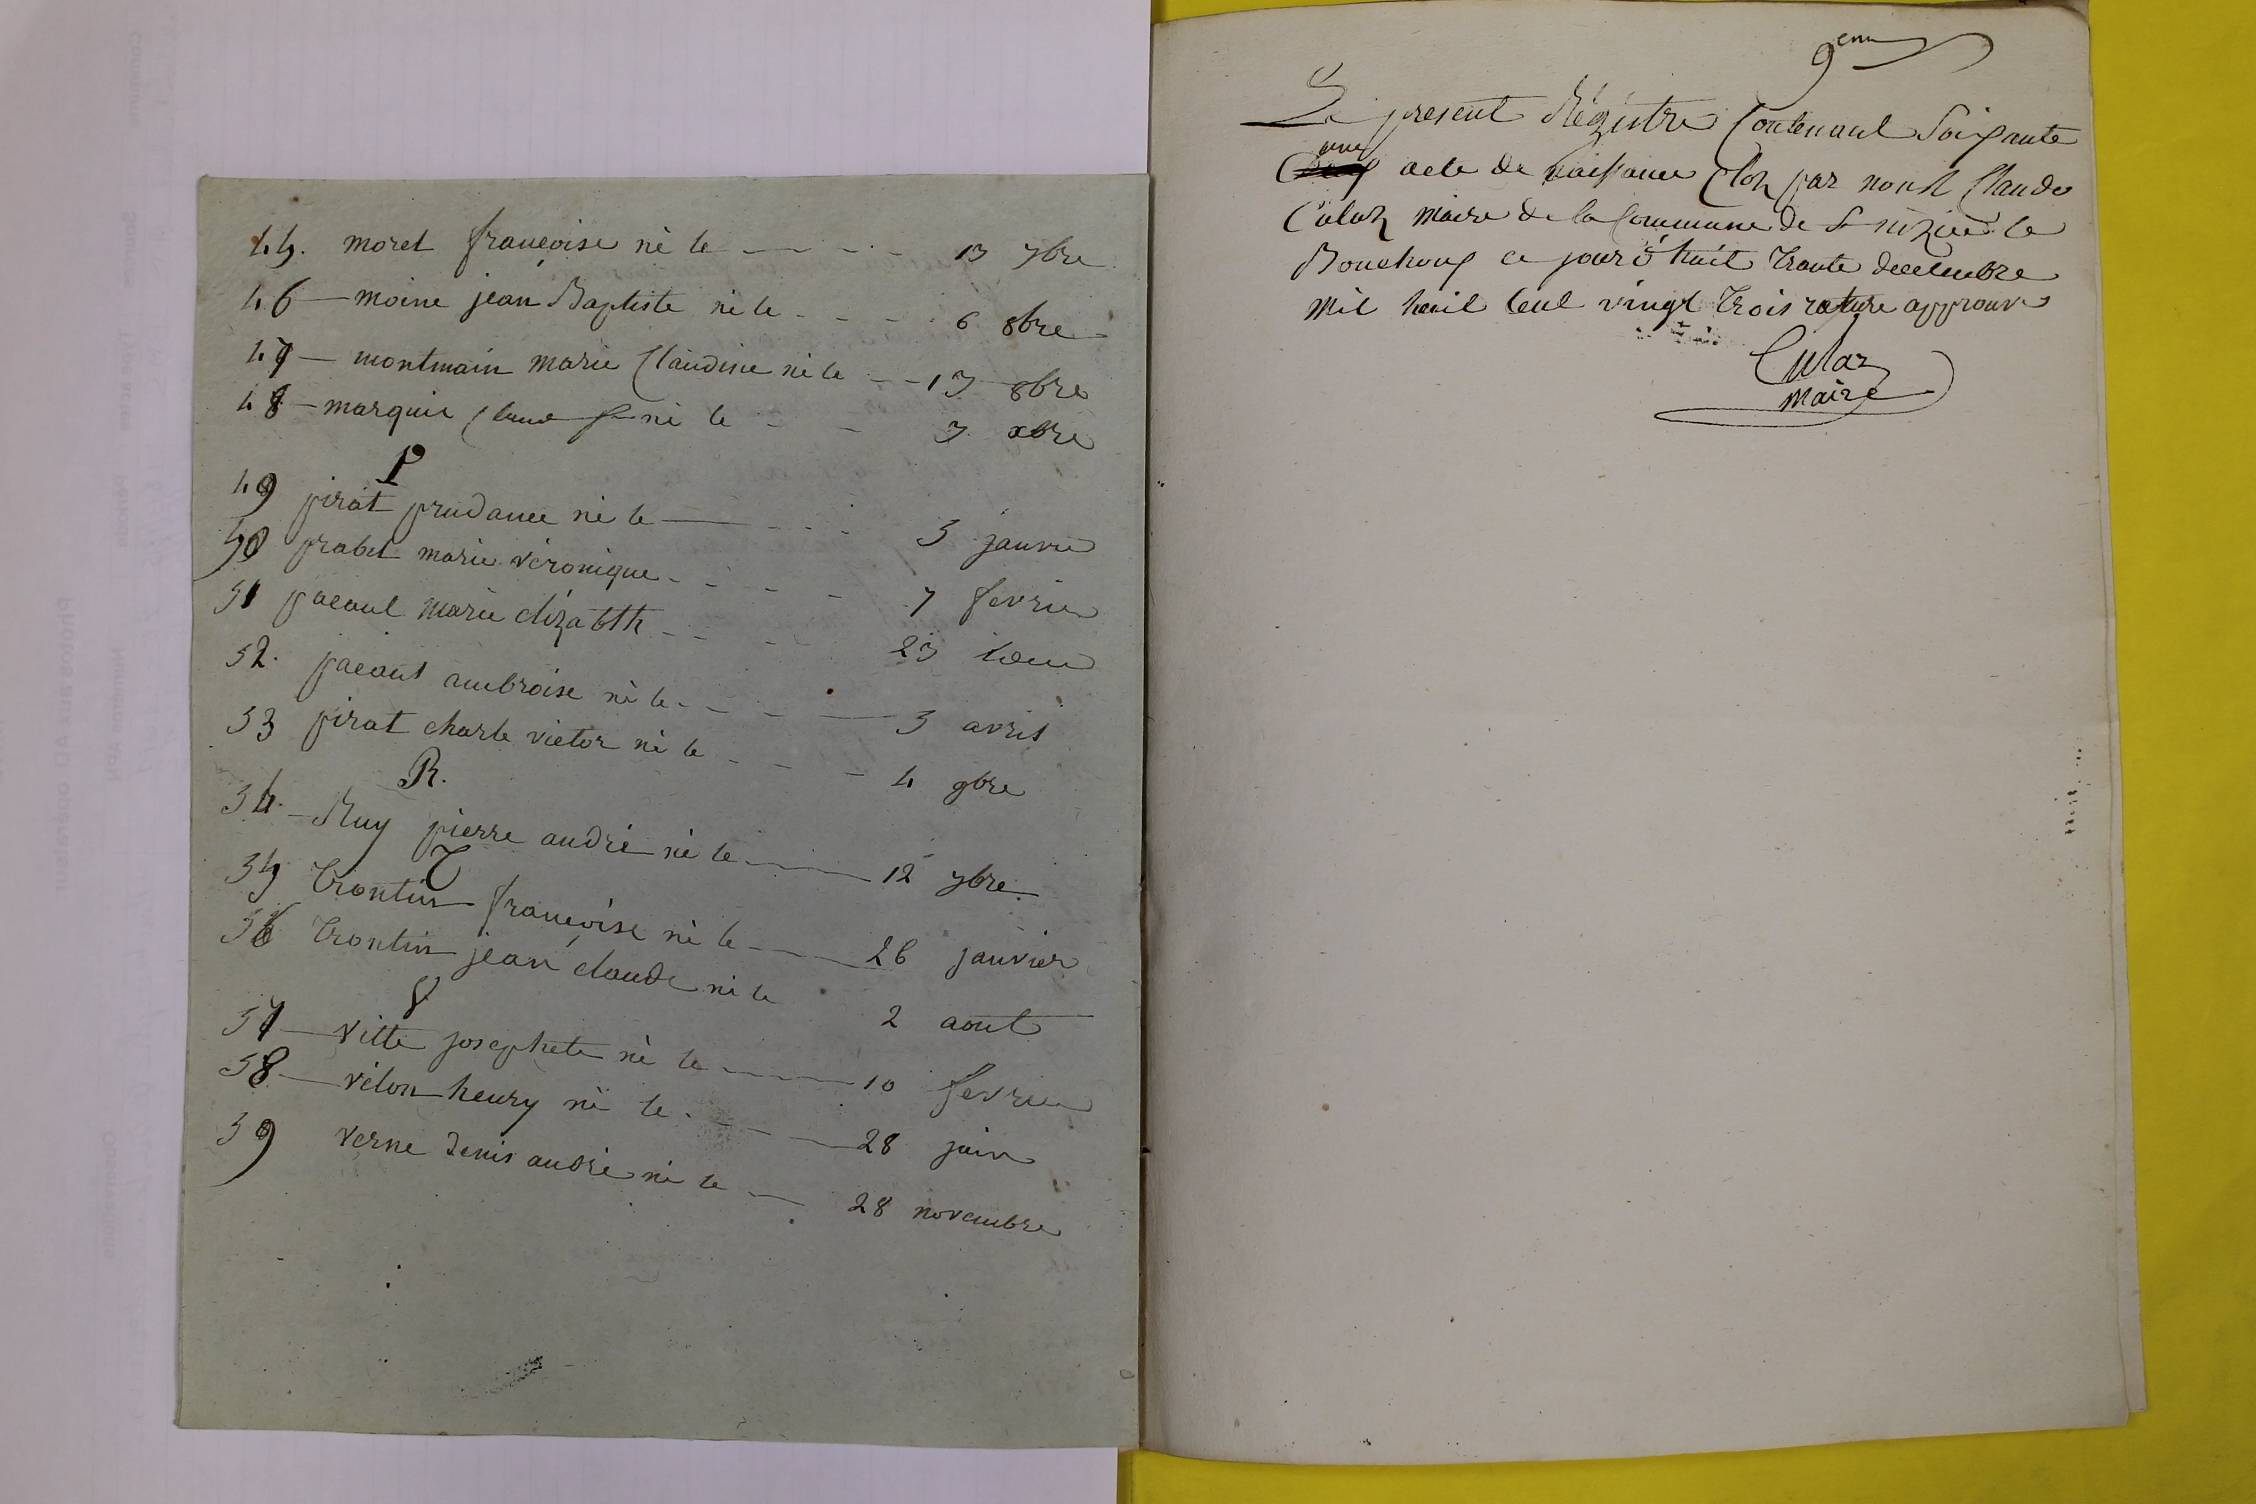 45. moret françoise né le - - - - 13 7bre
46 - moine jean Baptiste né le - - - 6 8bre
47 - montmain marie Claudine né le - - 13 8bre
48 - marquie né le - - 3 xbre
P
49 pirat prudance né le - - - 3 janvie
50 prabel marie véronique - - - - 7 fevrier
51 pacaul marie élizabth - - - - 23 idem
52. pacaut ambroise né le - - - 3 avril
53 pirat charle victor né le - - - 4 9bre
R.
54. - Ruy pierre andré né le - - - 12 7bre
T
55 Trontin françoise né le - - - 26 janvier
56 Trontin jean claude né le 2 aout
V
57 - vitte josephete né le - - - 10 fevrier
58 - vélon henry né le - - - 28 juin
59 verne denis andré né le - - 28 novembre
9eme
Le present Régistre Contenant Soixante
acte de naissance Clos par nous Claude
Culaz maire de la Commune de St nizier le
Bouchoux ce jourd'huit trante decembre
mil huit Cent vingt trois rature approuvé
Culaz
maire